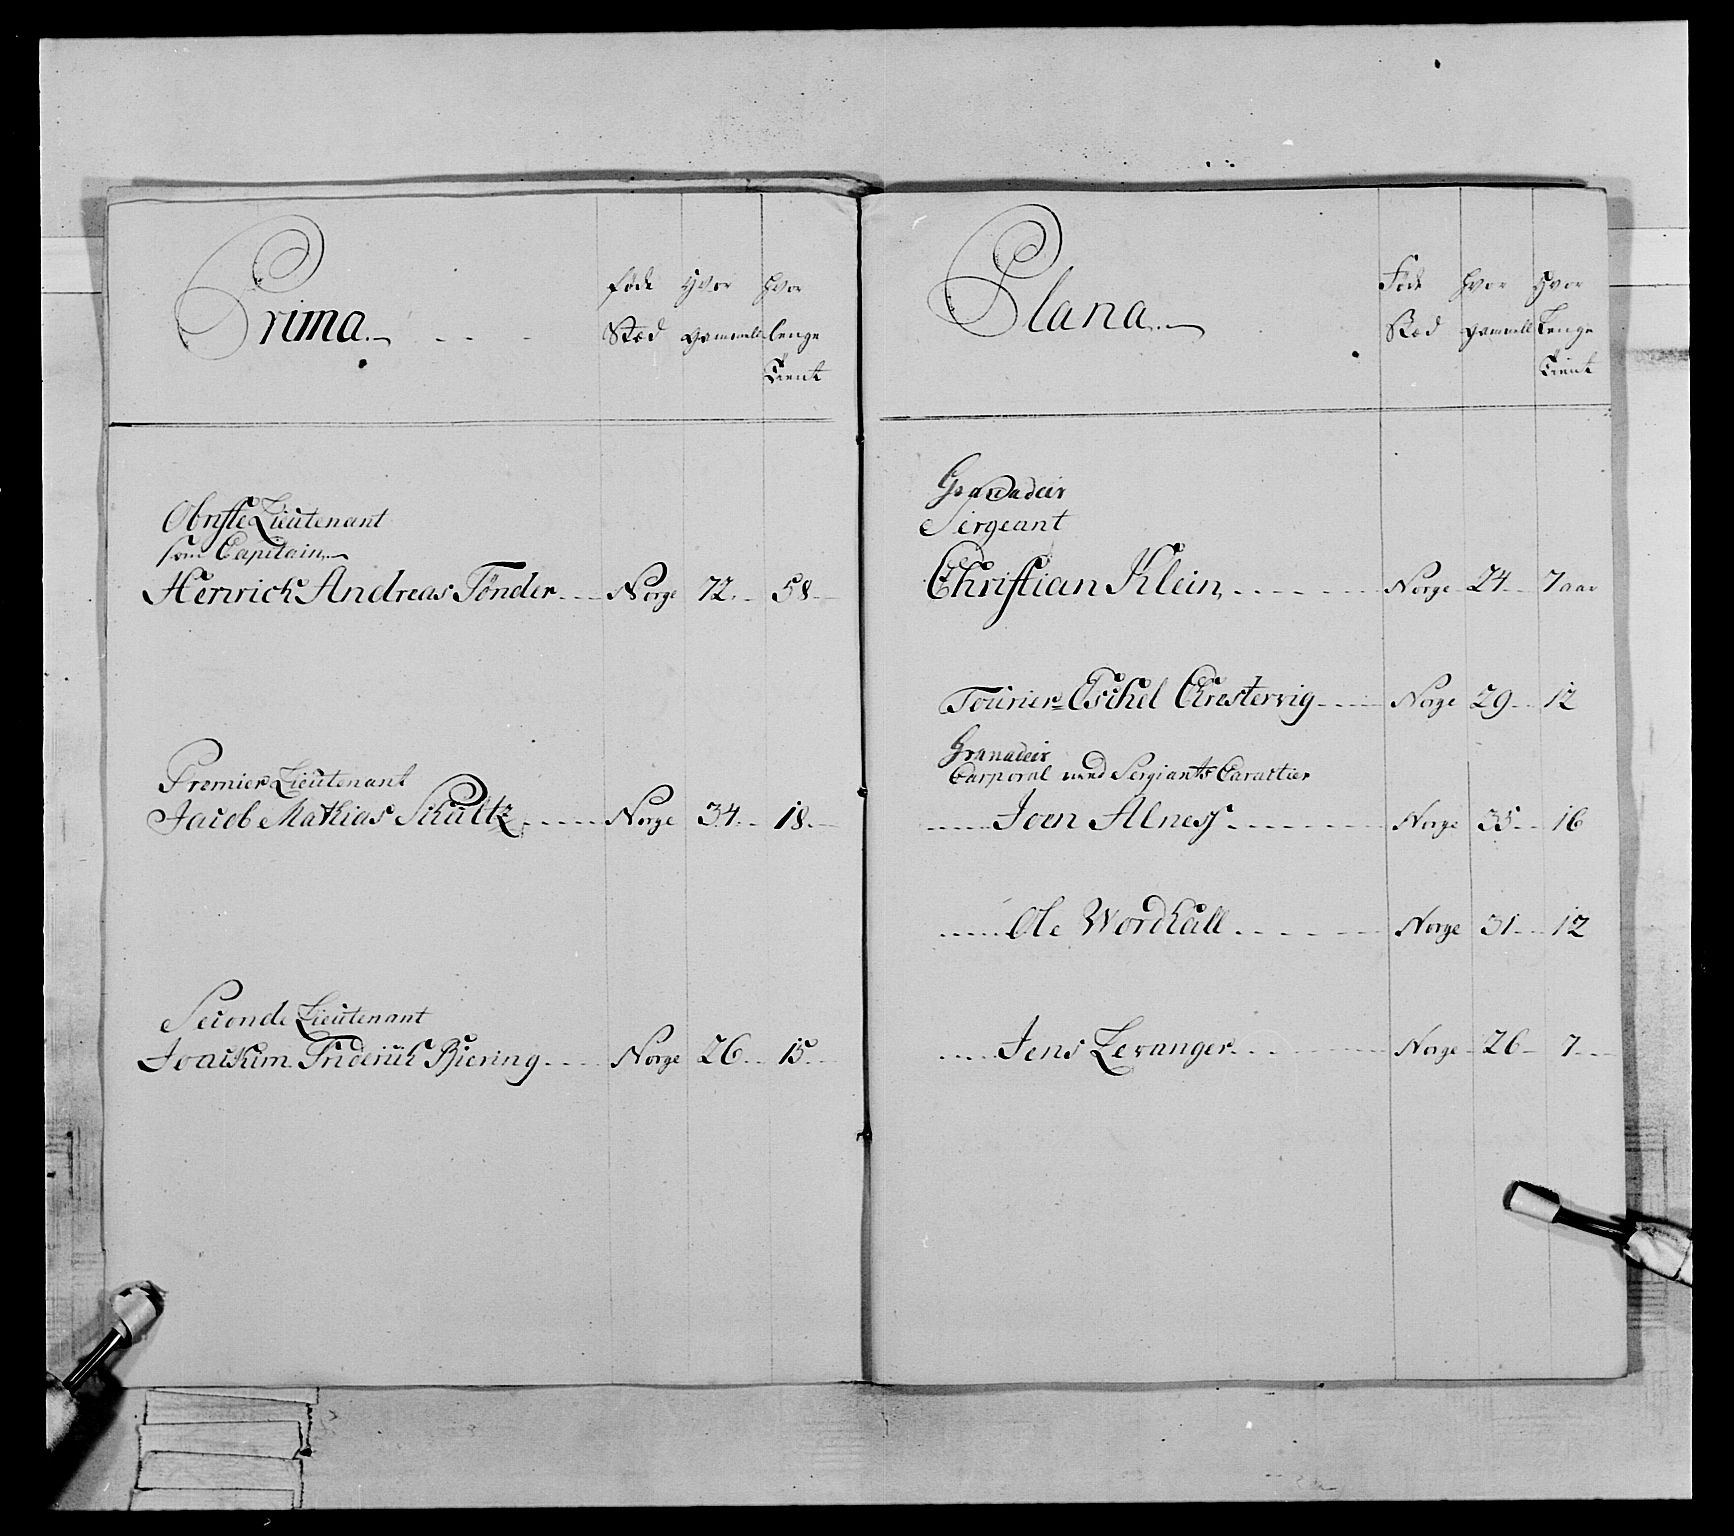 Prima
føde Hvor Hvor
Stæd gammell lenge
Tient
Obriste Lieutenant
som Capitain
Henrich Andreas Tønder Norge 72 58
Premier Lieutenant
Jacob Mathias Schultz Norge 34 18
Seconde Lieutenant
Joachim Friderich Biering Norge 26 15
Plana
Føde Hvor Hvor
Stæd gammell Lenge
Tient
Granadeir
Sergeant
Christian Klein Norge 24 7 aar
Fourier Eschel Norge 29 12
Granadeir
Corporal med Sergiants Caracter
Joen Alness Norge 35 16
Ole Wordhall Norge 31 12
Jens Levanger Norge 26 7